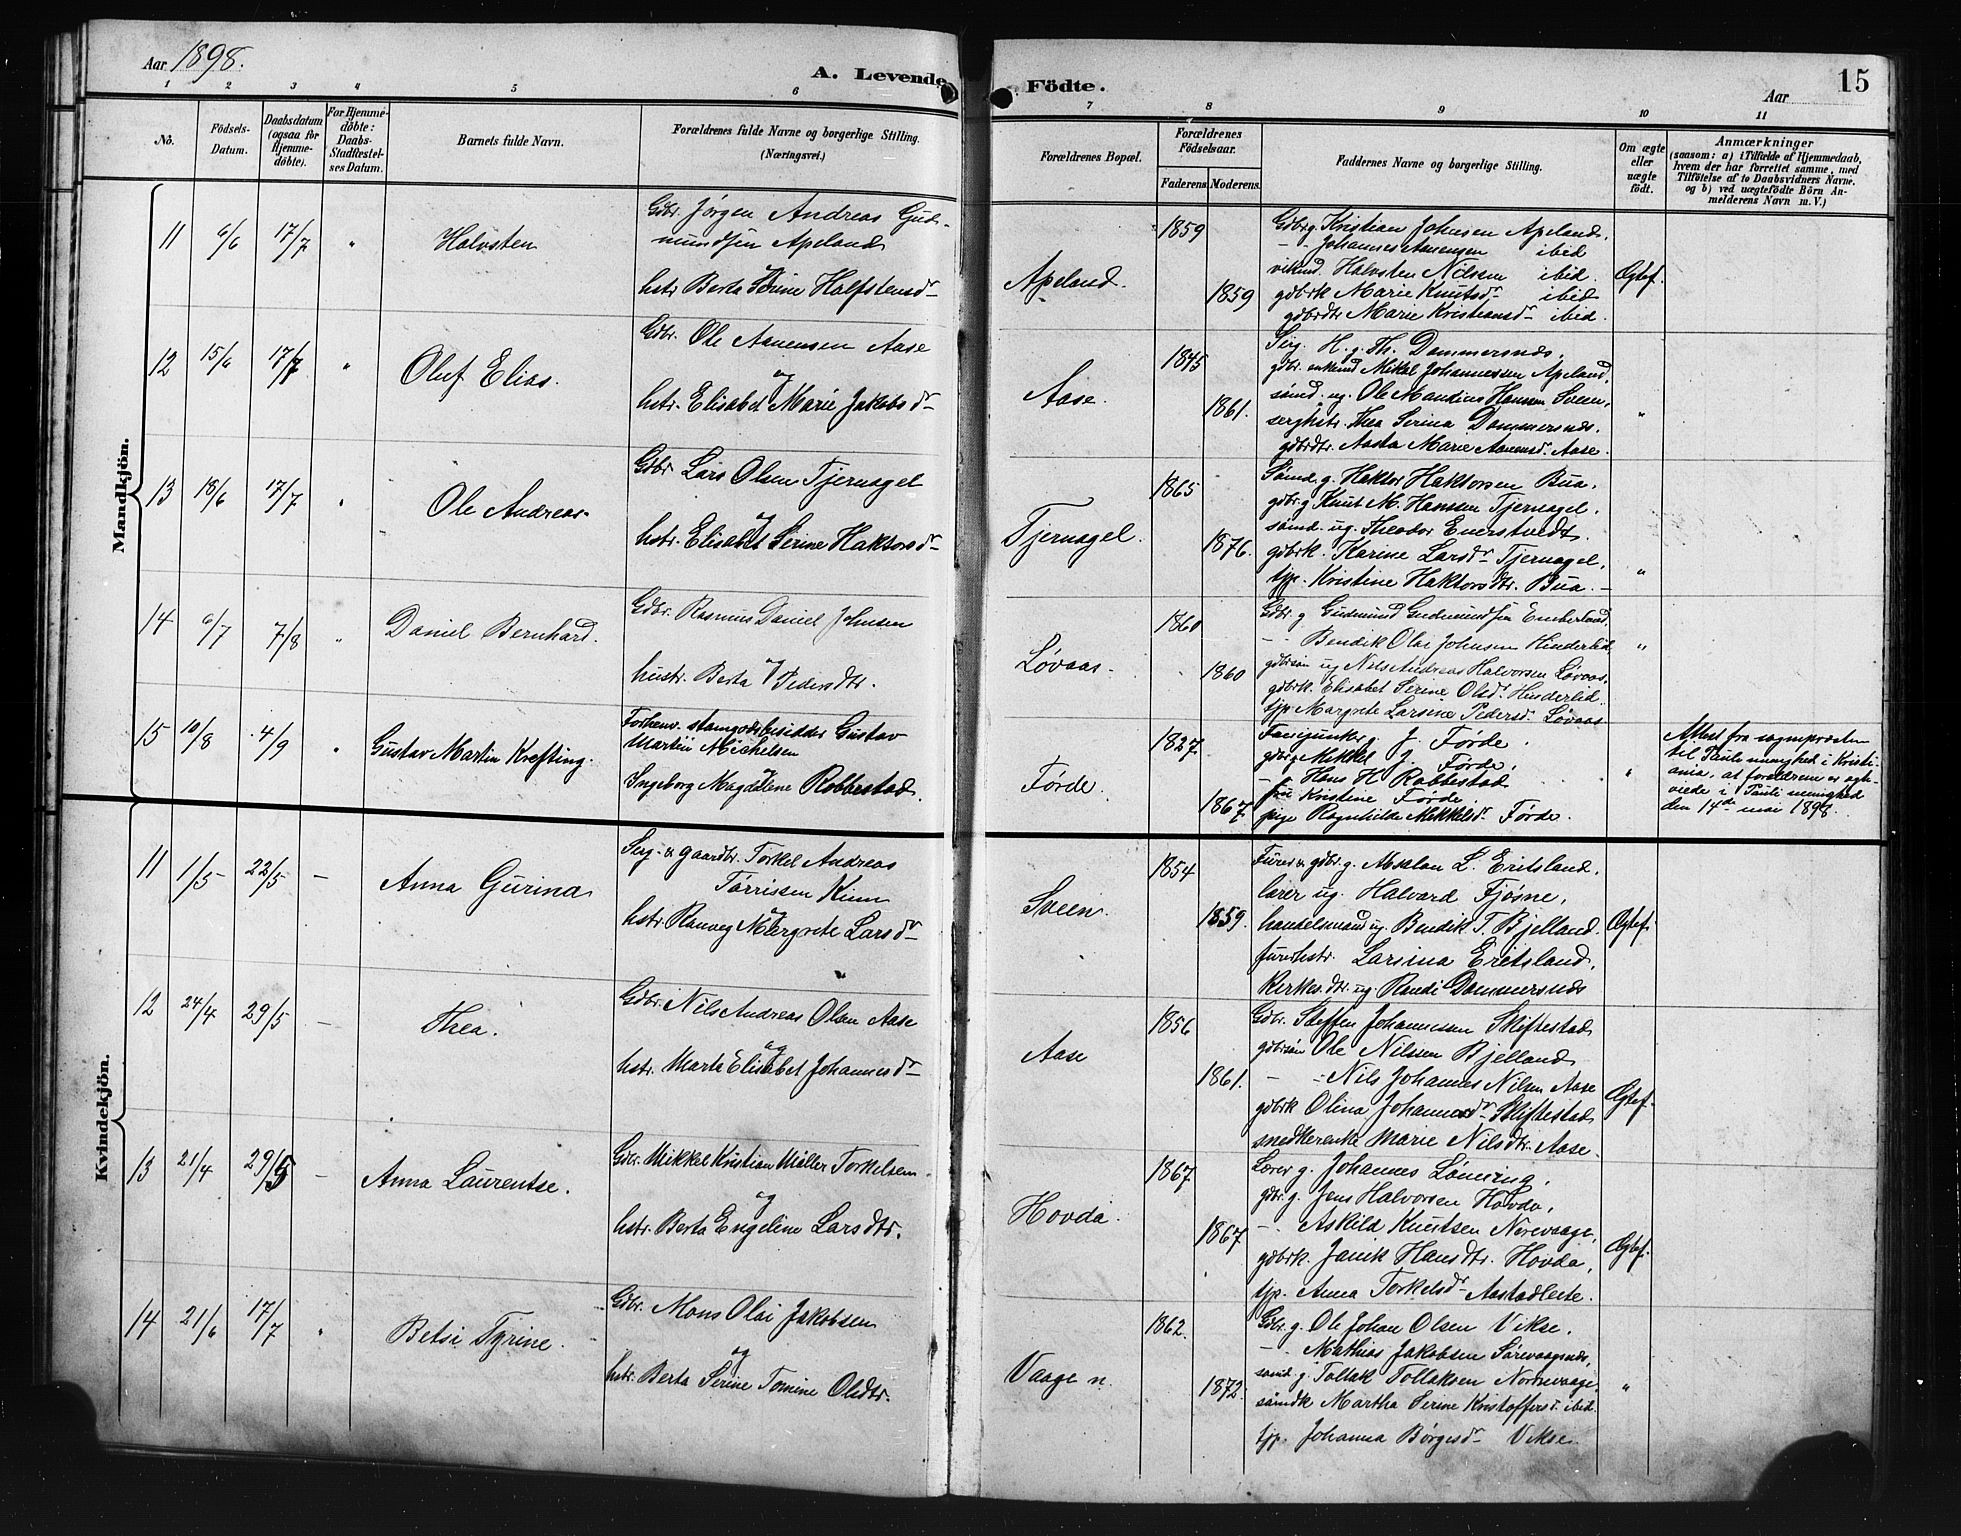 Aar 1898.
A. Levende Födte.
Aar
15
1 2 3 4 5 6 7 8 9 10 11
No.
Födsels-
Datum.
Daabsdatum
(ogsaa for
Hjemme-
döbte).
For Hjemme-
döbte:
Daabs-
Stadfæstel-
ses Datum.
Barnets fulde Navn.
Forældrenes fulde Navne og borgerlige Stilling.
(Næringsvei.)
Forældrenes Bopæl.
Forældrenes
Födselsaar.
Faderens.
Moderens.
Faddernes Navne og borgerlige Stilling.
Om ægte
eller
uægte
födt.
Anmærkninger
(saasom: a) i Tilfælde af Hjemmedaab,
hvem der har forrettet samme, med
Tilföielse af to Daabsvidners Navne.
og b) ved uægtefödte Börn An-
melderens Navn m. V.)
Mandkjön.
11 6/6 17/7 "
Halvsten
Gdbr. Jørgen Andreas Gud-
mundsen Apeland
og
hstr. Berta Serine Halfstensdr
Apeland.
1859
1859
Gdbrg. Kristian Johnsen Apeland.
- - Johannes Aanensen ibid
Halvsten Nilssen ibid.
gdbrk Marie Knutsdr ibid
gdbrdtr Marie Kristiansdr ibid.
Ægtef.
12 15/6 17/7 "
Oluf Elias.
Gdbr. Ole Aanensen Aase
og
hstr. Elisabet Marie Jakobsdr
Aase.
1845
1861.
Serg. H. g. Th. Dommersnæs.
gdbr. enkemd Mikel Johannessen Apeland.
sømd. ug. Ole Mandius Hansen Sveen,
serghstr. Thea Serina Dommersnæs.
gdbrdtr. Aasta Marie Aanensd. Aase.
"
13 18/6 17/7 "
Ole Andreas.
Gdbr Lars Olsen Tjernagel
og
hstr. Elisabet Serine Haktorsdr
Tjernagel.
1865
1876.
Sømd. g. Haktor Haktorsen Bua.
gdbr. g Knut M. Hansen Tjernagel.
sømd. ug. Theodor Enerstvedt.
gdbrk. Karine Larsdr Tjernagel.
tjp. Kristine Haktorsdtr. Bua.
"
14 6/7 7/8 "
Daniel Bernhard.
Gdbr. Rasmus Daniel Johnsen
og
hustr. Berta Pedersdtr.
Løvaas.
1860
1860
Gdbr. g Gudmund Gudmundsen Emberland.
- - Bendik Olai Johnsen Hinderlid
gdbrsøn ug Nils Andreas Halvorsen Løvaas.
gdbrk. Elisabet Serine Olsdr Hinderlid.
tjp Margrete Larsine Pedersd. Løvaas
"
15 10/8 4/9 "
Gustav Martin Krefting.
Forhenv. stamgodsbesidder Gustav
Martin Michelsen
Ingeborg Magdalene Robbestad.
Førde.
1827
1867
Fanejunker g. J. Førde.
gdbrg Mikkel J. Førde,
- Hans H Robbestad
fru Kristine Førde
pige Ragnhilde Mikkelsdr Førde.
"
Attest fra sognepræsten
til Pauli menighed i Kristi-
ania, at forældrene er ægte-
viede i Pauli menighed
den 14de mai 1898.
Kvindekjön.
11 1/5 22/5 -
Anna Gurina
Serg- & gaardbr. Torkel Andreas
Tørrissen Kinn
og
hstr. Ranveg Margrete Larsdr
Sveen.
1854
1859.
Furer & gdbr. g. Absalon L. Eritsland,
lærer ug. Halvard Fjøsne,
handelsmand ug. Bendik T. Bjelland.
furerhstr. Larsina Eritsland,
Kirkes.dtr. ug. Randi Dommersnæs
Ægtef.
12 24/4 29/5 -
Thea.
Gdbr. Nils Andreas Olsen Aase
og
hstr. Marta Elisabet Johannesdr
Aase
1856
1861.
Gdbr. Steffen Johannessen Skiftestad
gdbrsøn Ole Nilssen Bjelland
- - Nils Johannes Nilsen Aase
gdbrk Olina Johannesdr Skiftestad
snedkerenke Marie Nilsdtr. Aase.
Ægtef.
13 21/4 29/5 -
Anna Laurentse.
Gdbr. Mikkel Kristian Møller Torkelsen
og
hstr. Berta Engeline Larsdtr.
Hovda.
1867
1867
Lærer g. Johannes Lønning,
gdbr. g. Jens Halvorsen Hovda,
- - Askild Knutsen Norevaage,
gdbrk. Janik Hansdtr. Hovda,
tjp. Anna Torkelsdr Aastadleite.
Ægtef.
14 21/6 17/7 "
Betsi Tyrine.
Gdbr. Mons Olai Jakobsen
og
hstr. Berta Serine Tomine Olsdtr.
Vaage n.
1862.
1872.
Gdbr. g. Ole Johan Olsen Vikse.
- - Mathias Jakobsen Sørevaagnæs,
sømd g. Tollak Tollaksen Norevaage,
sømdk Martha Serine Kristoffersd. ibid.
tjp. Johanna Børgesdr Vikse.
"